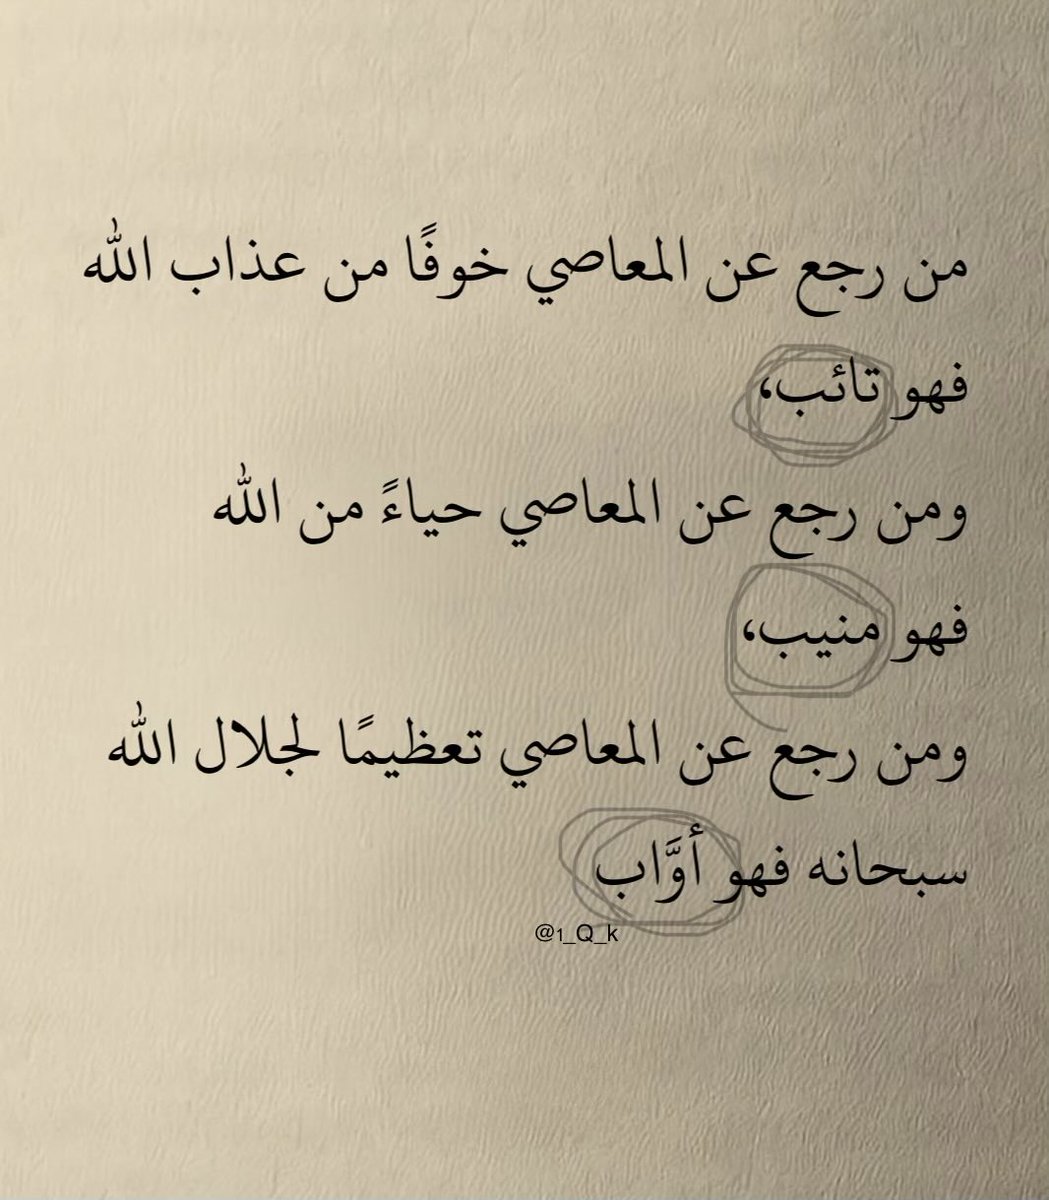 من رجع عن المعاصي خوفًا من عذاب الله
فهو تائب،
ومن رجع عن المعاصي حياءً من الله
فهو منيب،
ومن رجع عن المعاصي تعظيمًا لجلال الله
سبحانه فهو أوَّاب
@1_Q_k